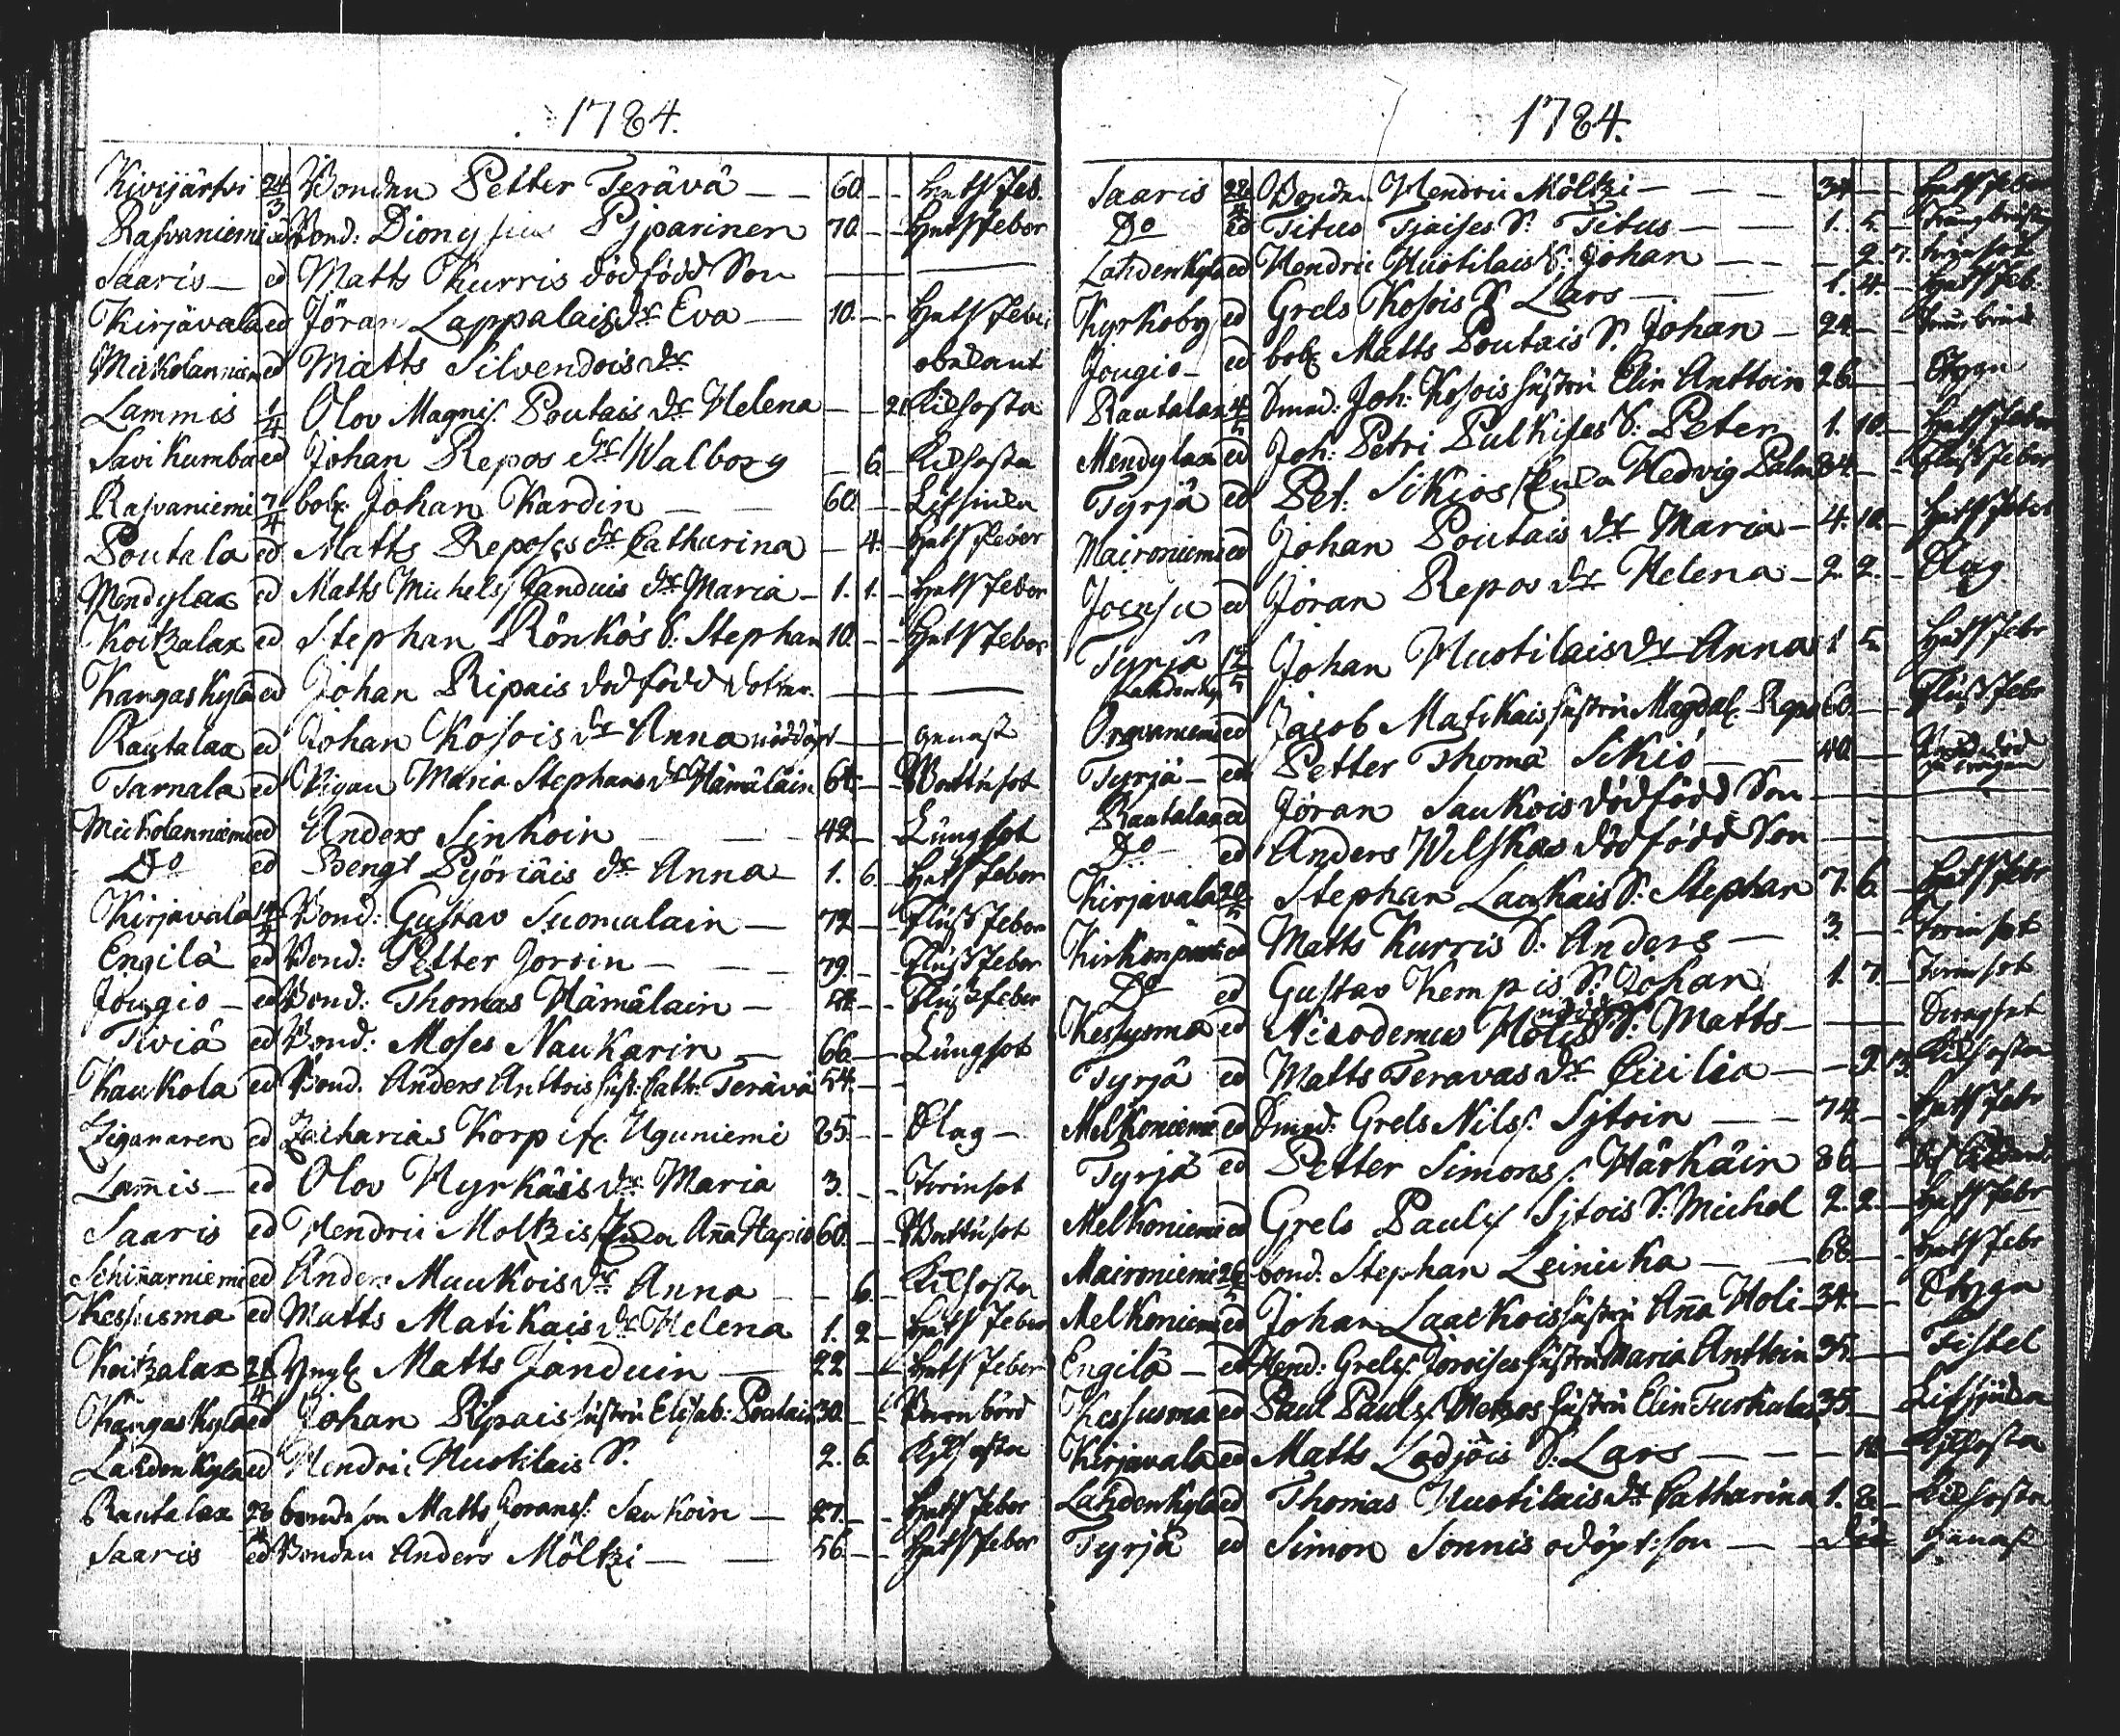 1784.
Kivijärfvi 24/3 Bonden Petter Terävä — — 60. - - Hetsfeb.
Rasvaniemi ed Bond: Dionysius Pijparinen 70. - - Hetsfeber
Saaris — ed Matts Kurris dödfödd Son — —
Kirjävala ed Jöran Lappalais dr Eva — 10. - - Hetsfeber
Mickolanniem ed Matts Silvendois dr obekant
Lammis 1/4 Olov Magnis. Poutais dr Helena — - 21 Kikhosta
Savikumbo ed Johan Repos dr Walborg — 6. - Kikhosta
Rasvaniemi 7/4 Johan Kardin — — 60. - -
Poutala ed Matts Reposes dr Catharina — 4. - Hetsfeber
Mendylax ed Matts Michelss. Janduis dr Maria — 1. 1. - Hetsfeber
Koitzalax ed Stephan Rönkös S. Stephan 10. - - Hetsfeber
Kangaskylä ed Johan Ripais dödfödd dotter — —
Rautalax ed Johan Kosois dr Anna nöddöpt — — genast
Tarnala ed Pigan Maria Stephans dr Hämäläin 64. - - Wattusot
Mickolanniemi ed Anders Sinkoin — — 42 - - Lungsot
Do ed Bengt Pyöriäis dr Anna — 1. 6. - Hetsfeber
Kirjavala Bond: Gustav Suomalain — 72. - - Flussfeber
Engilä ed Bond: Petter Joroin — — 79. - - Flussfeber
Jougio — ed Bond: Thomas Hämäläin — - - Flussfeber
Tiviä ed Bond: Moses Naukarin — 66. — Lungsot
Kaukola ed Bond. Anders Anttois hust: Cath: Terävä 54. - -
Ziganaren ed Zacharias Korp if: Uguniemi - - Slag —
Lam̄is — ed Olov Hyrkäis dr Maria 3. - - Torrsot
Saaris ed Hendric Moltzis Enka An̄a Hapio 60. - - Wattusot
Schin̄arniemi ed Anders Muukois dr Anna — - 6. - Kikhosta
Kessusma ed Matts Matikais dr Helena 1. 2 — Hetsfeber
Koitzalax Matts Janduin — 22 - - Hetsfeber
Kangaskylä ed Johan Ripais hustru Elisab: Poutain 30. - Barnbörd
Lahdenkylä ed Hendric Huotilais S. 2. 6. Kikhosta
Rautalax bondeson Matts Göranss: Saukoin — 27. - - Hetsfeber
Saaris ed Bonden Anders Möltzi — — 56. - - Hetsfeber
1784.
Saaris Bonden Hendric Möltzi — — — Hetsfeber
Do ed Titus Tiaises S. Titus — — 1. 5. -
Lahdenkylä ed Hendric Huotilais S. Johan — — — 2. 7.
Kyrkoby ed Grels Kosois S. Lars — — 1. 4. - Hetsfeb.
Jougio — ed Matts Poutais S. Johan — 24. - -
Rautalax Joh: Kosois hustru Elin Anttoin 26. — Otygn
Mendylax ed Joh: Petri Pulkises S. Peter 1. 10. — Hetsfeber
Tyrjä ed Pet: Sikiös Enka Hedvig — Flussfeber
Maironiemi ed Johan Poutais dr Maria — 4. 10. — Hetsfeber
Joensu ed Jöran Repos dr Helena — 2. 2. — Slag
Tyrjä Johan Huotilais dr Anna 1 5 Hetsfebr
Lahdenky
ed Jacob Matikais hustru Magdal: Repo 60. — Flussfebr
Tyrjä — ed Petter Thoma Sikiö — — 40. —
Rautalax ed Jöran Saukois dödfödd Son — —
Do ed Anders Wilskas dödfödd Son — —
Kirjavala Stephan Laukais S. Stephan 7. 6. — Hetsfebr
ed Matts Kurris S. Anders — 3. — Torrsot
Do ed Gustav Kempis S. Johan 1. 7. — Torrsot
Kessusma ed Nicodemus Holis S. Matts — —
Tyrjä ed Matts Teravas dr Cicilia — Kikhosta
Melkoniemi ed Grels Nilss: Sjtoin — — 74. - Hetsfebr
Tyrjä ed Petter Simonss. Härkäin 86. —
Melkoniemi ed Grels Paulss Sjtois S. Michel 2. 2. — Hetsfebr
Maironiemi bond. Stephan Leinicka — — 68. - Hetsfebr
Melkoniemi ed Johan Laackois hustru An̄a Holi — 34. — Otygn
Engilä — ed Grelss: Joroises hustru Maria Anttoin 35. — Fistel
Kessusma ed Paul Paulss. hustru Elin 35. —
Kirjavala ed Matts Lodjöis S. Lars — — — Kikhosta
Lahdenkylä ed Thomas Huotilais dr Catharina 1. 8. — Kikhosta
Tyrjä ed Simon Sonnis odöpt son — — genast